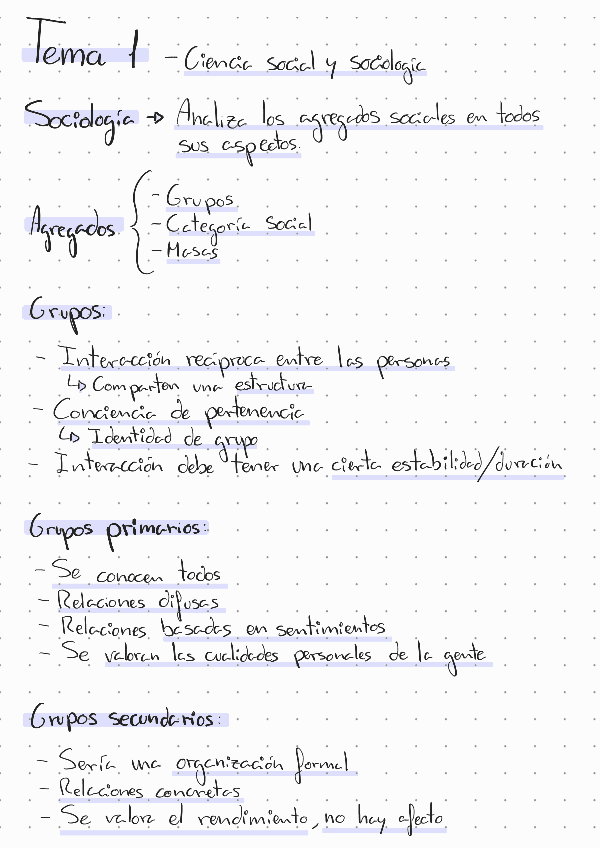 Tema 1 - Ciencia social y sociología
Sociología → Analiza los agregados sociales en todos
sus aspectos.
Agregados { - Grupos
- Categoría social
- Masas
Grupos:
- Interacción recíproca entre las personas
↳ Comparten una estructura
- Conciencia de pertenencia
↳ Identidad de grupo
- Interacción debe tener una cierta estabilidad/duración
Grupos primarios:
- Se conocen todos
- Relaciones difusas
- Relaciones basadas en sentimientos
- Se valoran las cualidades personales de la gente
Grupos secundarios:
- Sería una organización formal
- Relaciones concretas
- Se valora el rendimiento, no hay afecto